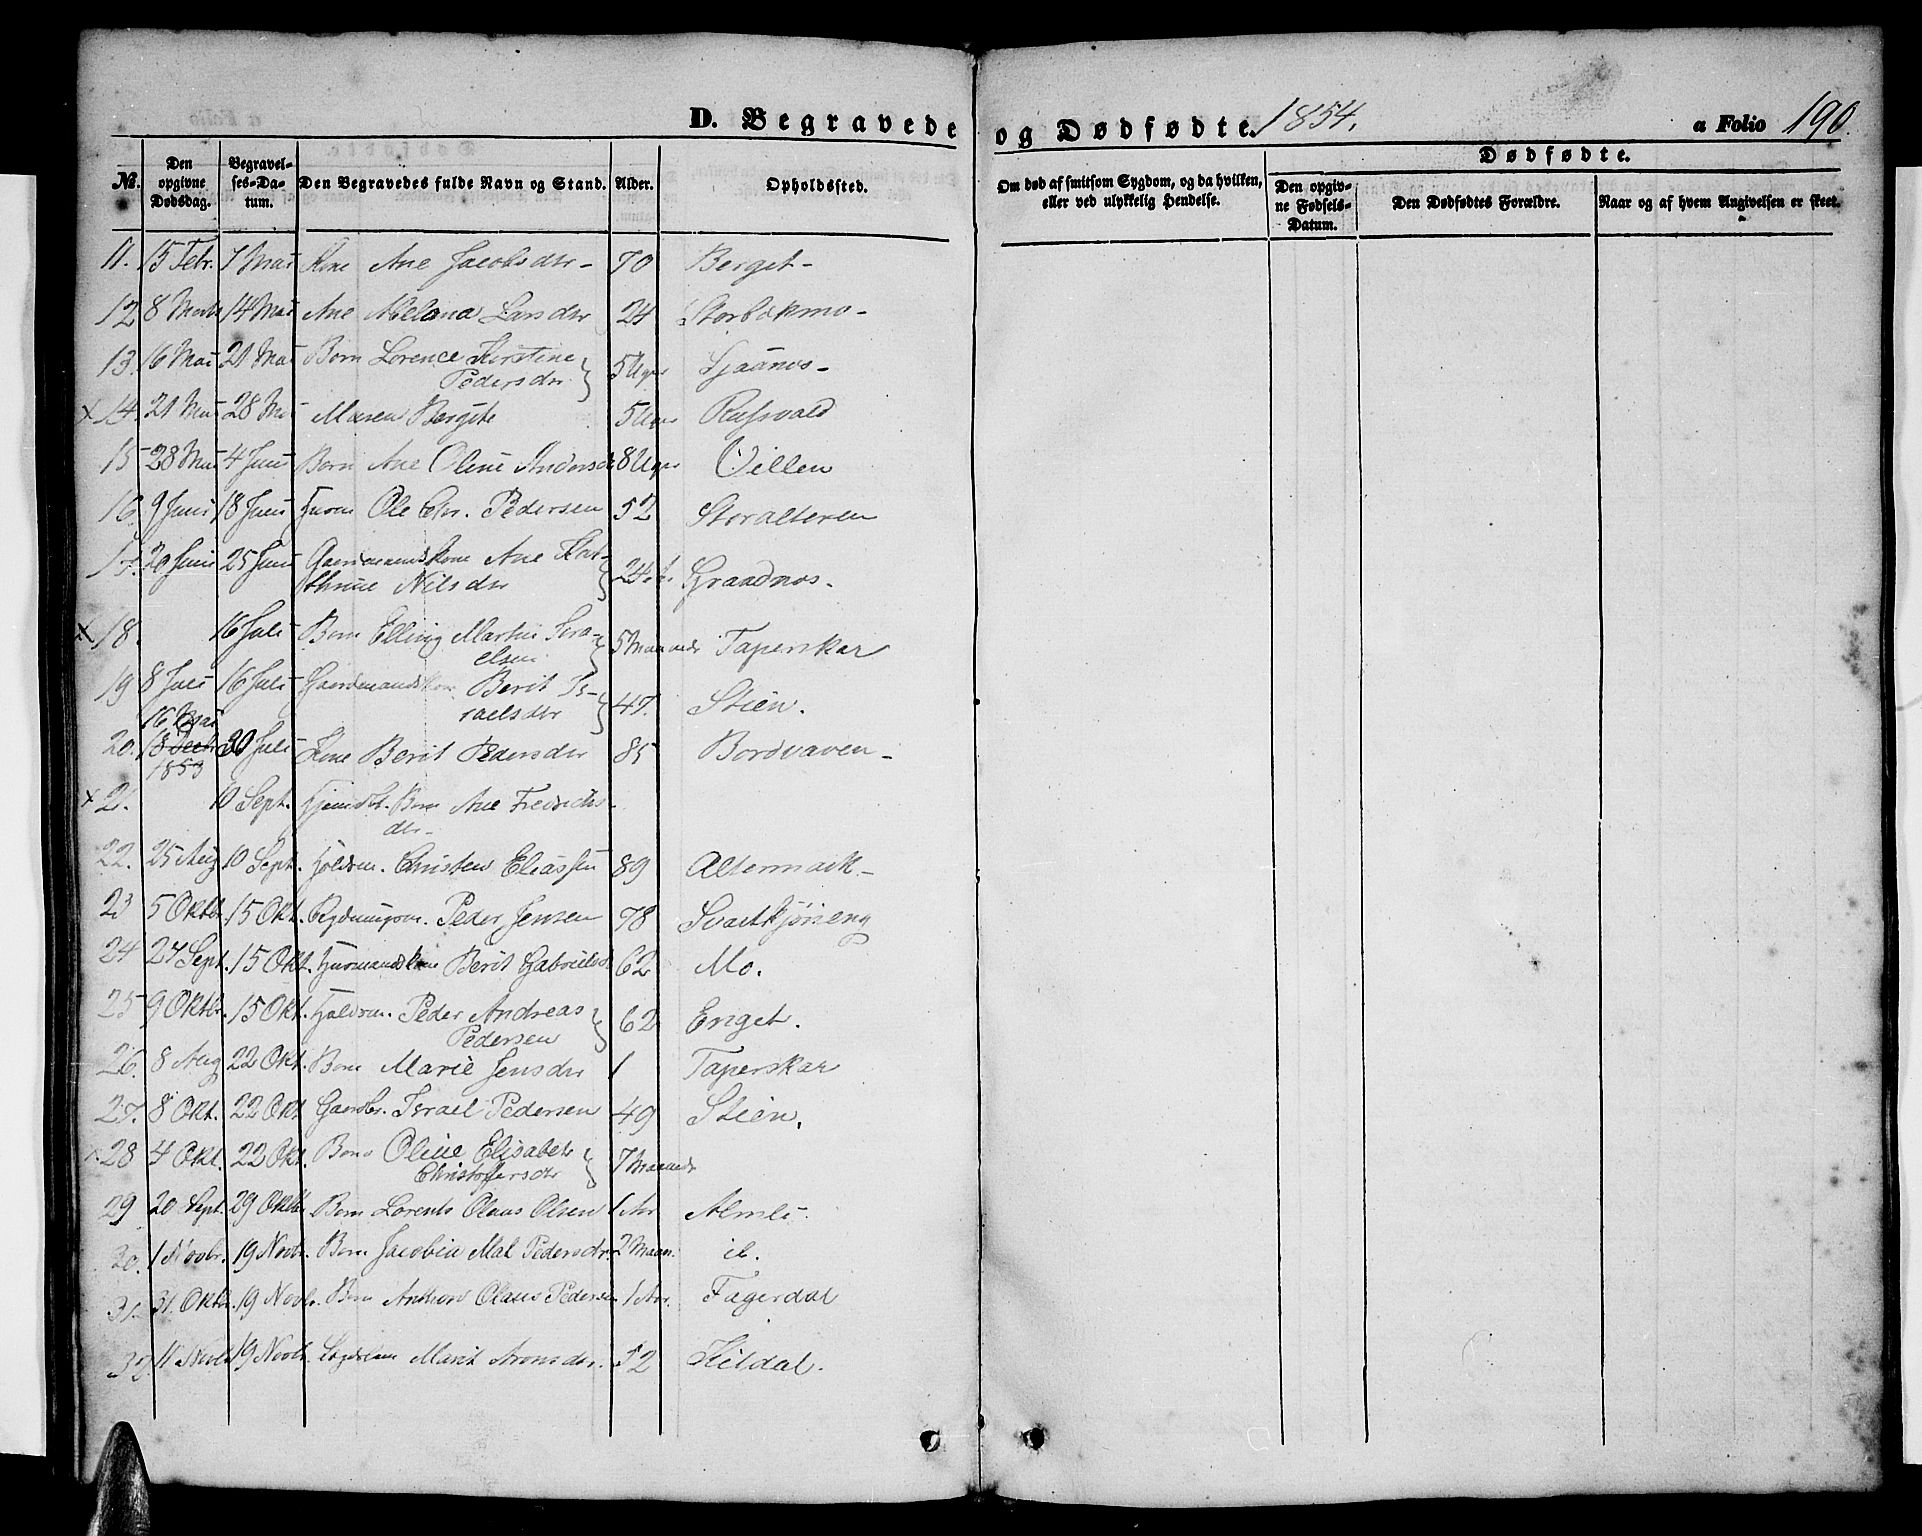 D. Begravede og Dødfødte. 1854. a Folio 190.
No. Den opgivne Dødsdag. Begravelses-Datum. Den Begravedes fulde Navn og Stand. Alder. Opholdssted. Om død af smitsom Sygdom, og da hvilken, eller ved ulykkelig Hendelse. Dødfødte. Den opgivne Fødsels-Datum. Den Dødfødtes Forældre. Naar og af hvem Angivelsen er skeet.
11. 15 Febr. 7 Mai Kone Ane Jacobsdtr 70 Berget
12 8 Marts 14 Mai Ane Melana Larsdtr 24 Storbækmo
13. 16 Mai 21 Mai Barn Lorence Kirstine
Pedersdtr 5 Uger
x 14. 21 Mai 28 Mai Maren Bergite 5 Uger Rufsvald
15 28 Mai 4 Juni Barn Ane Oline Andersdr 8 Uger Villen
16 9 Juni 18 Juni Ole Chr. Pedersen 52 Storalteren
17. 20 Juni 25 Juni Gaardmandskone Ane Kat-
thrine Nilsdtr 24 Graadnæs
x 18. 16 Juli Barn Elling Martin Isra-
elsen 5 Maaneder Taperskar
19 8 Juli 16 Juli Gaardmandskone Berit Is-
raelsdtr 47. Stien.
16 Mai
20. 18 Decb 30 Juli Kone Berit Pedersdtr 85 Bordvaven
1853
x 21. 10 Sept. Barn Ane Fredriks-
dtr
22. 25 Aug 10 Sept. Christen Eliassen 89 Altermark
23 5 Oktbr. 15 Okt. Rydningsm. Peder Jensen 78 Svartkjøneng
24 27 Sept. 15 Okt. Huusmandskone Berit Gabrielsd 62 Mo.
25 9 Oktbr. 15 Okt. Peder Andreas
Pedersen 62 Enget.
26. 8 Aug 22 Okt. Barn Marie Jensdtr 1 Taperskar
27. 8 Okt. 22 Okt Gaardbr. Israel Pedersen 49 Stien.
x 28 4 Okt. 22 Okt. Barn Oline Elisabet
Christoffersdtr 7 Maaneder
29 20 Sept. 29 Oktbr Barn Lorents Olaus Olsen 1 Aar Almli
30. 1 Novbr. 19 Novbr. Barn Jacobin Mal Pedersdtr. 2 Maan. ib.
31. 31. Oktbr. 19 Novbr. Barn Anthon Olaus Pedersen 1 Aar. Fagerdal
32. 11 Novbr 19 Novbr Marit Aronsdtr. 52 Kildal.